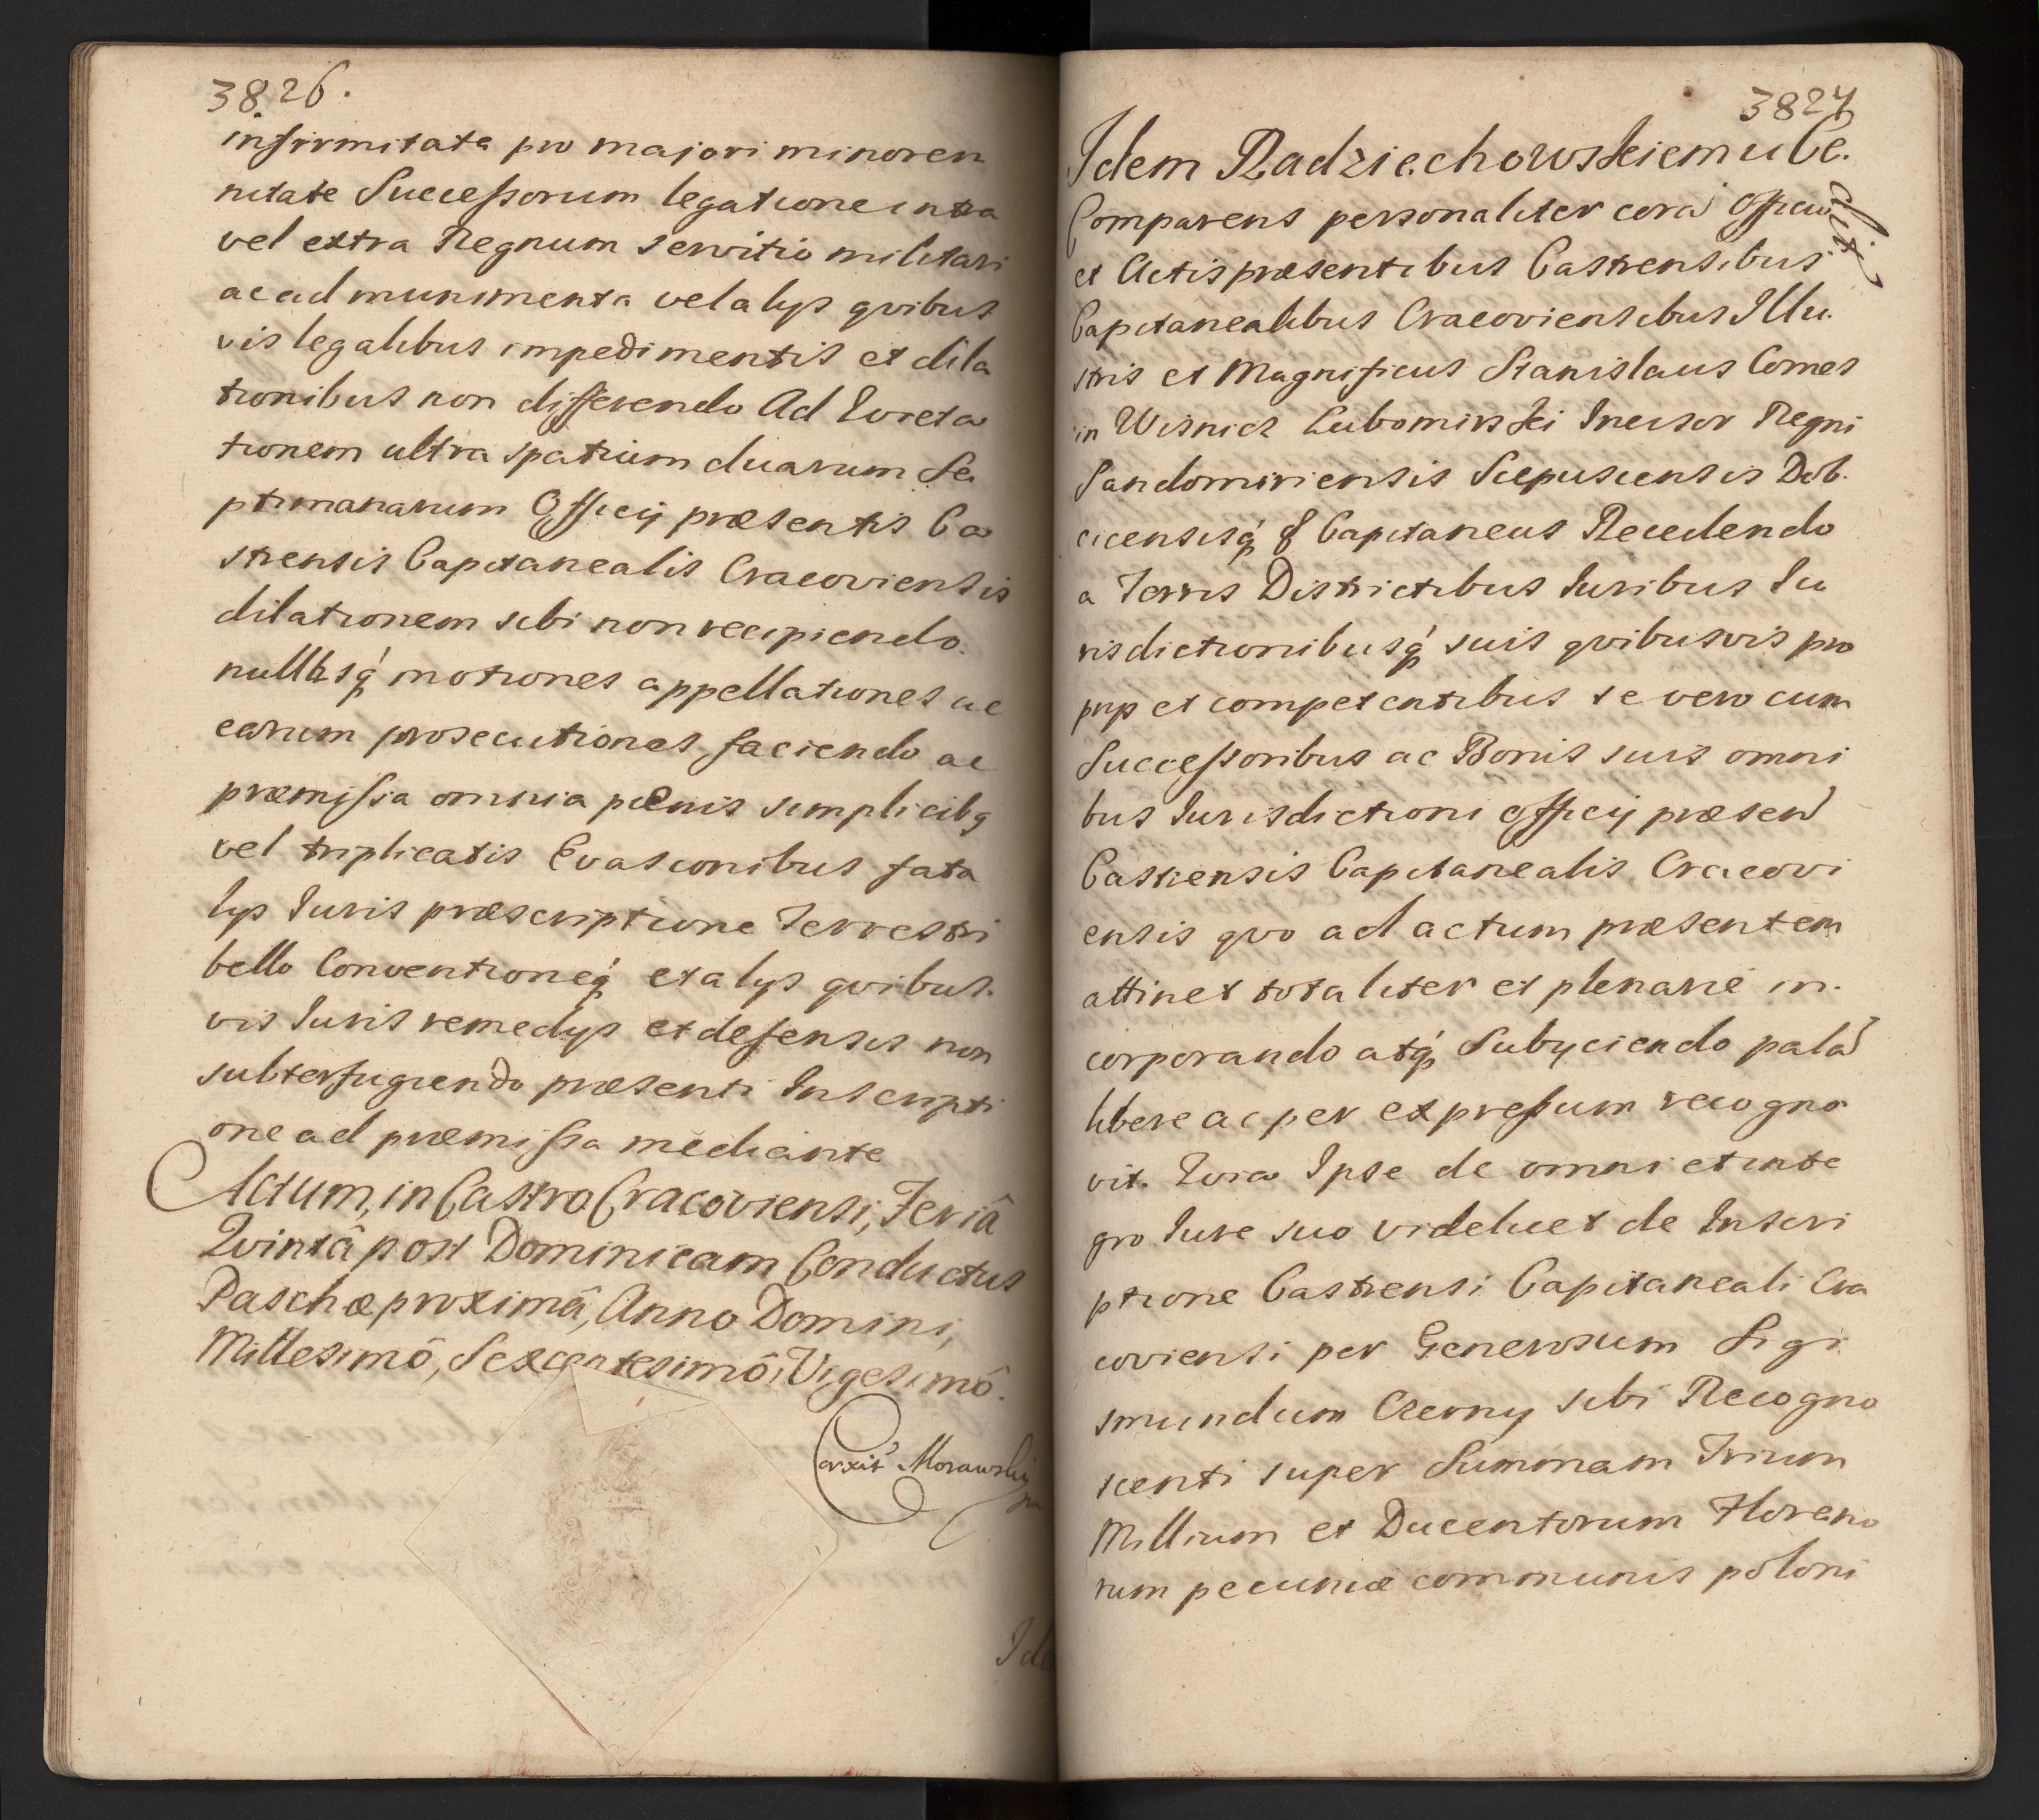 3826.
infirmitate pro majori minoren
nitate Successorum legatione intra
vel extra Regnum servitio militari
ac ad munimenta vel alys qvibus
vis legalibus impedimentis et dila
tionibus non differendo Ad Evicta
tionem ultra spatium duarum Se
ptimanarum Officij præsentis Ca
strensis Capitanealis Cracoviensis
dilationem sibi non recipiendo
nullasq́ motiones appellationes ac
earum prosecutiones faciendo ac
præmissa omnia pœnis simplicibq
vel triplicatis Evasionibus fata
lys Iuris præscriptione Terrestri
bello Conventioneq́ et alys qvibus.
vis Iuris remedys et defensis non
subterfugiendo præsenti Inscripti
one ad præmissa mediante
Actum, in Castro Cracoviensi, Feriâ
Qvintâ post Dominicam Conductus
Paschæ proximâ, Anno Domini,
Millesimô, Sexcentesimô, Vigesimô.
Corxit Morawsky
Ide
3827
Idem Radziechowskiemu Ce.
dit
Comparens personaliter corã Officio
et Actis præsentibus Castrensibus
Capitanealibus Cracoviensibus Illu.
stris et Magnificus Stanislaus Comes
in Wisnicz Lubomirski Incisor Regni
Sandomiriensis Scepusiensis Dob.
cicensisq́ & Capitaneus Recedendo
a Terris Districtibus Iuribus Iu
risdictionibusq́ suis qvibusvis pro
prys et competentibus se vero cum
Successoribus ac Bonis suis omni
bus Iurisdictioni Officij præsen
Castrensis Capitanealis Cracovi
ensis qvo ad actum præsentem
attinet totaliter et plenarie in.
corporando atq́ Subyciendo palã
libere ac per expressum recogno
vit. Qvia Ipse de omni et inte
gro Iure suo videlicet de Inscri
ptione Castrensi Capitaneali Cra
coviensi per Generosum Sigi
smundum Czerny sibi Recogno
scenti super Summam Trium
Millium et Ducentorum Floreno
rum pecuniæ communis poloni